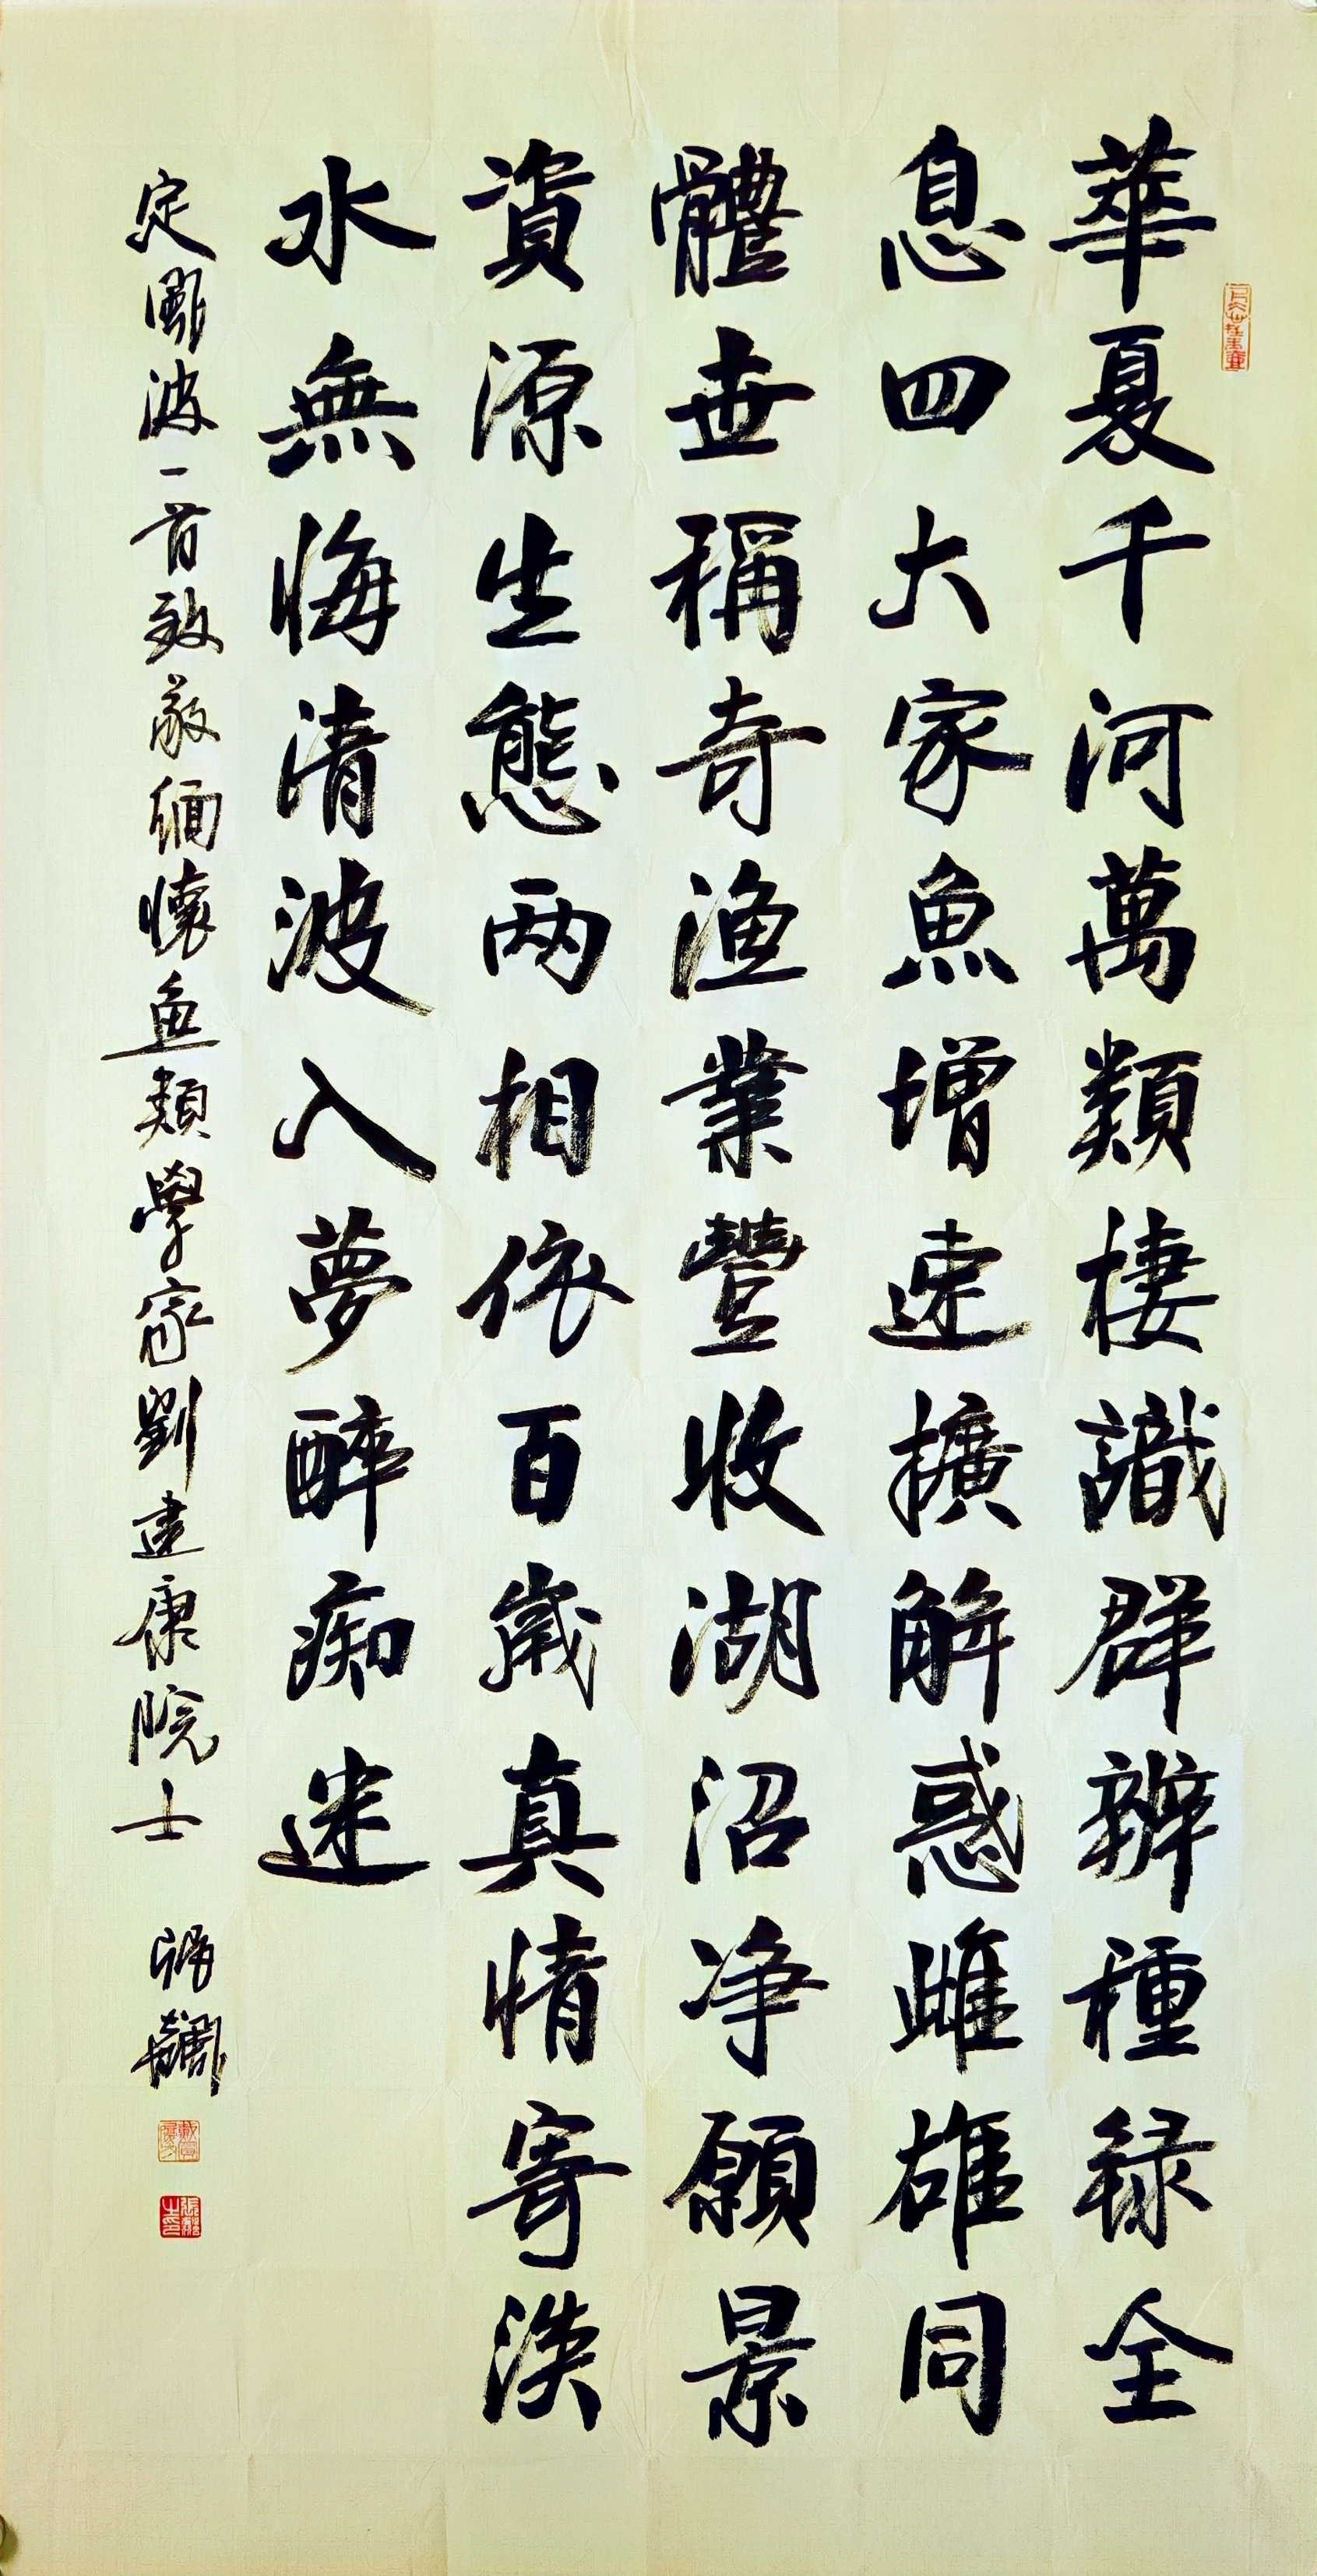 華夏千河萬類棲識群辨種録全
息四大家魚增速擴解惑雌雄同
體世稱奇漁業豐收湖沼净願景
資源生態两相依百歲真情寄淡
水無悔清波入夢醉痴迷
定風波一首致敬緬懷魚類學家劉建康院士